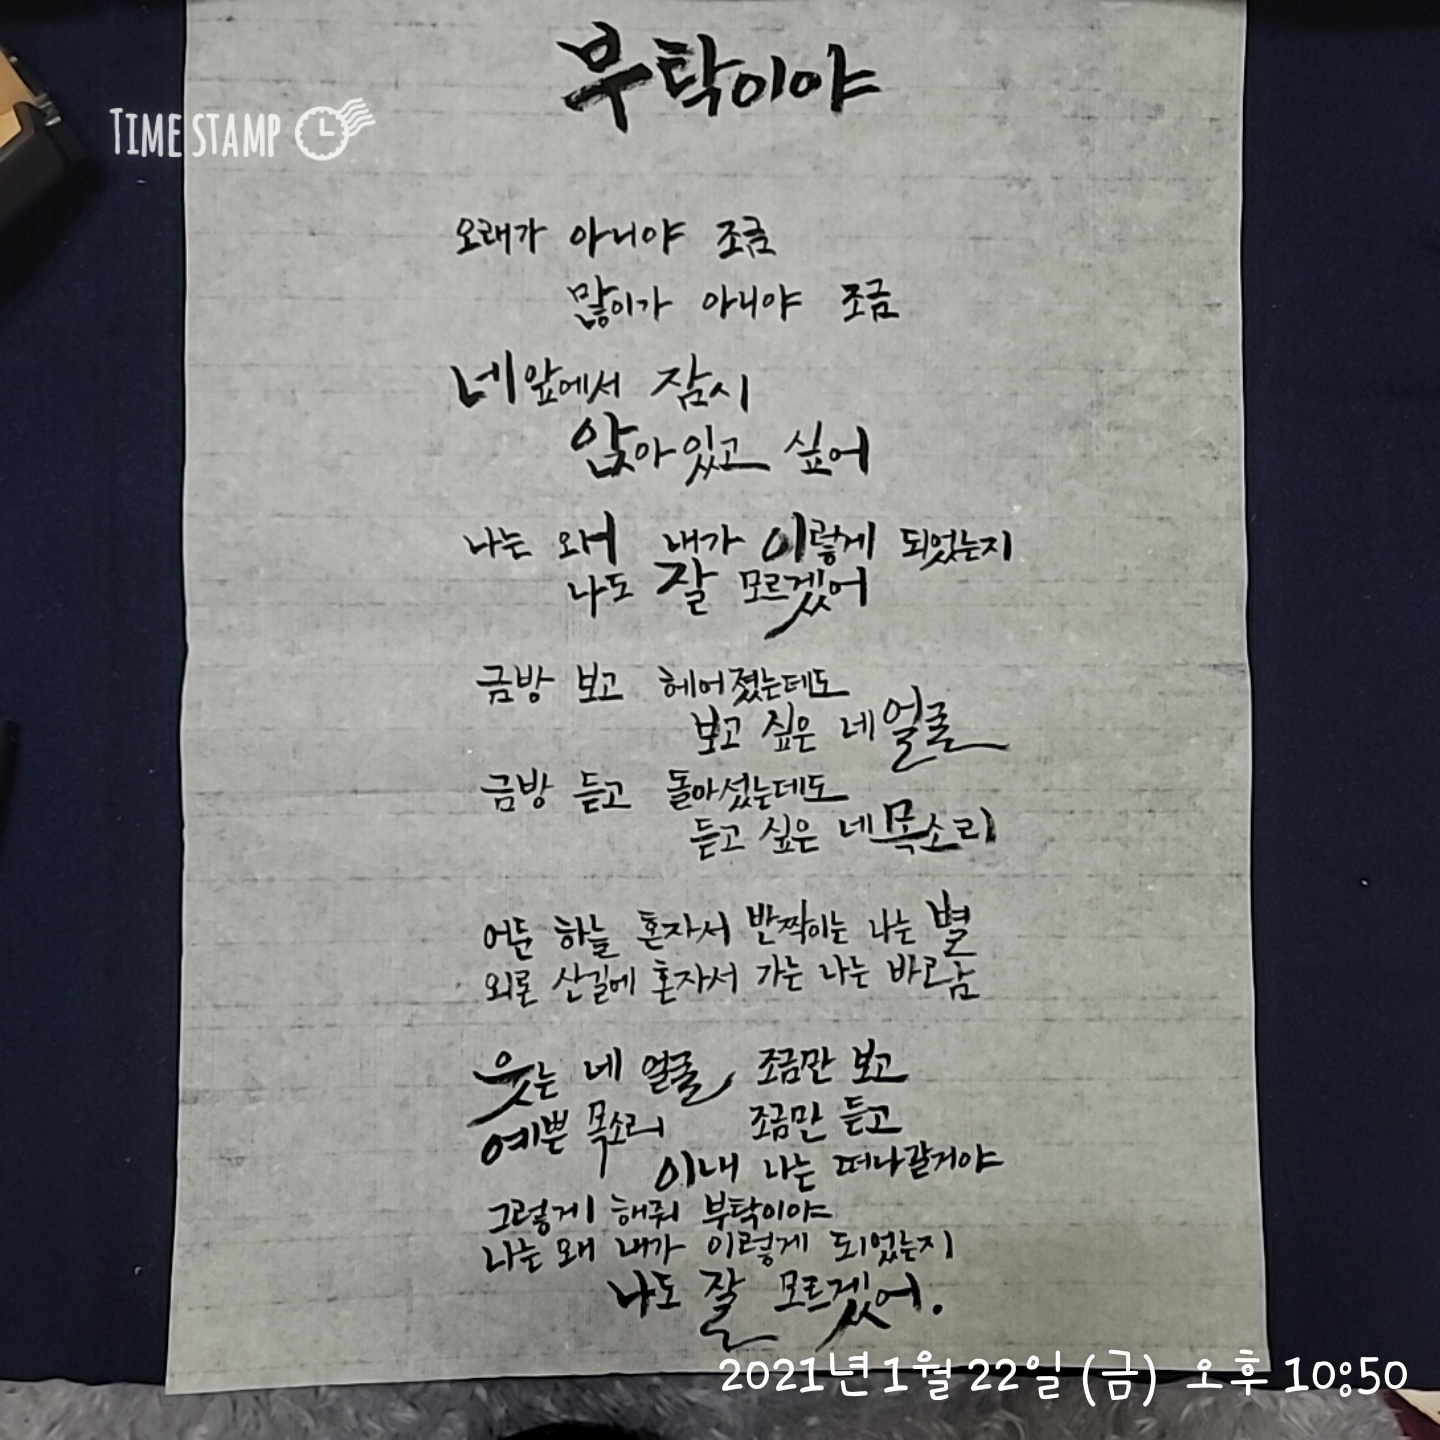 부탁이야
TIME STAMP
오래가 아니야 조금
많이가 아니야 조금
네 앞에서 잠시
앉아 있고 싶어
나는 왜 내가 이렇게 되었는지
나도 잘 모르겠어
금방 보고 헤어졌는데도
보고 싶은 네 얼굴
금방 듣고 돌아섰는데도
듣고 싶은 네 목소리
어둔 하늘 혼자서 반짝이는 나는 별
외론 산길에 혼자서 가는 나는 바람
웃는 네 얼굴 조금만 보고
예쁜 목소리 조금만 듣고
이내 나는 떠나갈거야
그렇게 해줘 부탁이야
나는 왜 내가 이렇게 되었는지
나도 잘 모르겠어.
2021년 1월 22일 (금) 오후 10:50